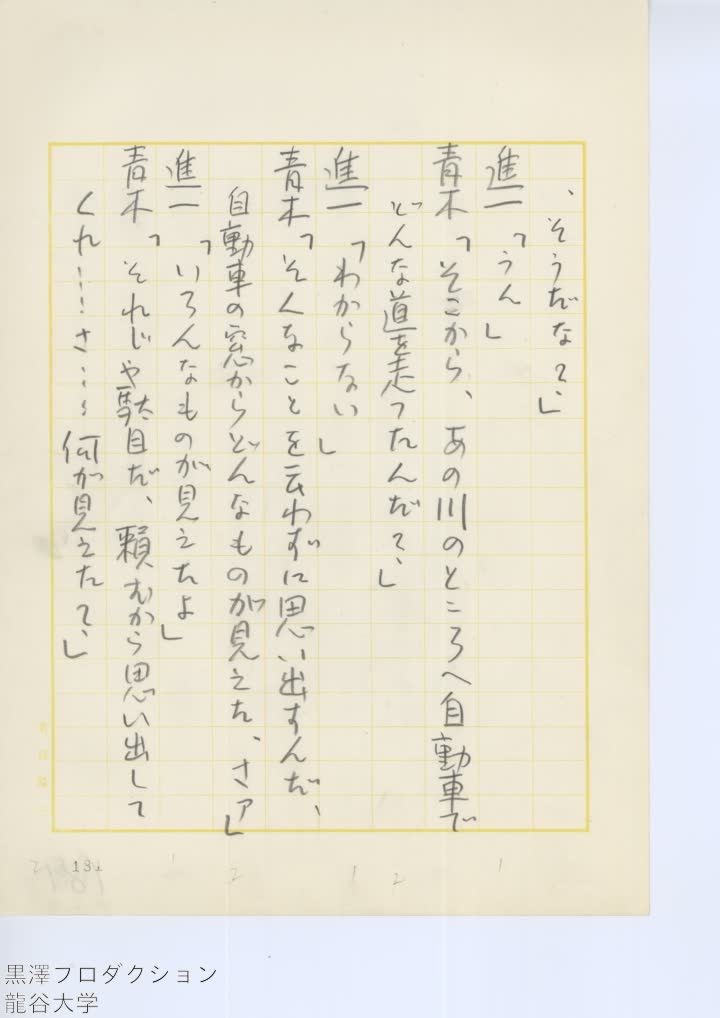 、そうだな？、」
進一「うん」
青木「そこから、あの川のところへ自動車で
どんな道を走ったんだ？、」
進一「わからない」
青木「そんなことを云わずに思い出すんだ、
自動車の窓からどんなものが見えた、さァ」
進一「いろんなものが見えたよ」
青木「それじゃ駄目だ、頼むから思い出して
くれ……さ……何が見えた？、」
131
黒澤プロダクション
龍谷大学